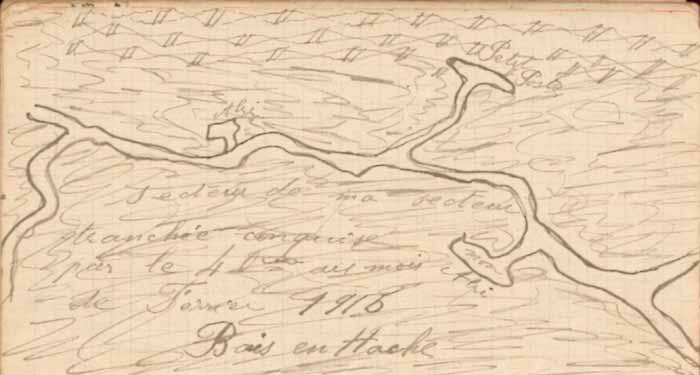 Petit
Poste
Abri
Secteur de ma section
tranchée conquise
par le 4 au mois
de Fevrier 1916
Bois en Hache
mon
Abri